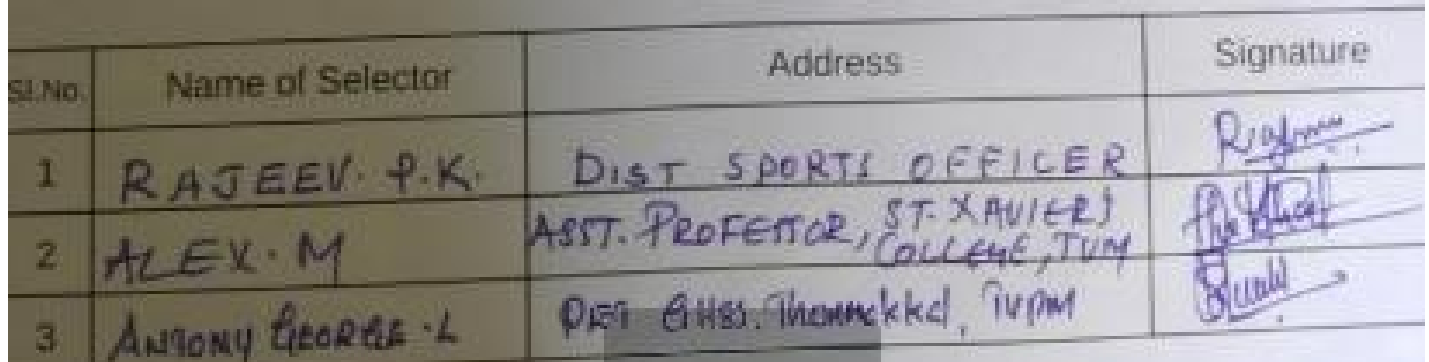 Sl.No. Name of Selector Address Signature
1 RAJEEV. P.K. DIST SPORTS OFFICER
2 ALEX. M ASST. PROFESSOR, ST. XAVIERS
COLLEGE, TVM
3 ANTONY GEORGE. L GHSS. TVPM